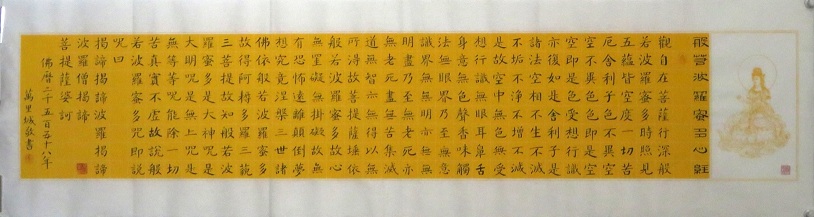 般若波羅蜜多心經
觀自在菩薩行深般
若波羅蜜多時照見
五蘊皆空度一切苦
厄舍利子色不異空
空不異色色即是空
空即是色受想行識
亦復如是舍利子是
諸法空相不生不滅
不垢不淨不增不減
是故空中無色無受
想行識無眼耳鼻舌
身意無色聲香味觸
法無眼界乃至無意
識界無無明亦無無
明盡乃至無老死亦
無老死盡無苦集滅
道無智亦無得以無
所得故菩提薩埵依
般若波羅蜜多故心
無罣礙無掛礙故無
有恐怖遠離顛倒夢
想究竟涅槃三世諸
佛依般若波羅蜜多
故得阿耨多羅三藐
三菩提故知般若波
羅蜜多是大神咒是
大明咒是無上咒是
無等等咒能除一切
苦真實不虛故說般
若波羅蜜多咒即說
咒曰
揭諦揭諦波羅揭諦
波羅僧揭諦
菩提薩婆訶
佛曆二千五百五十八年
萬里城敬書